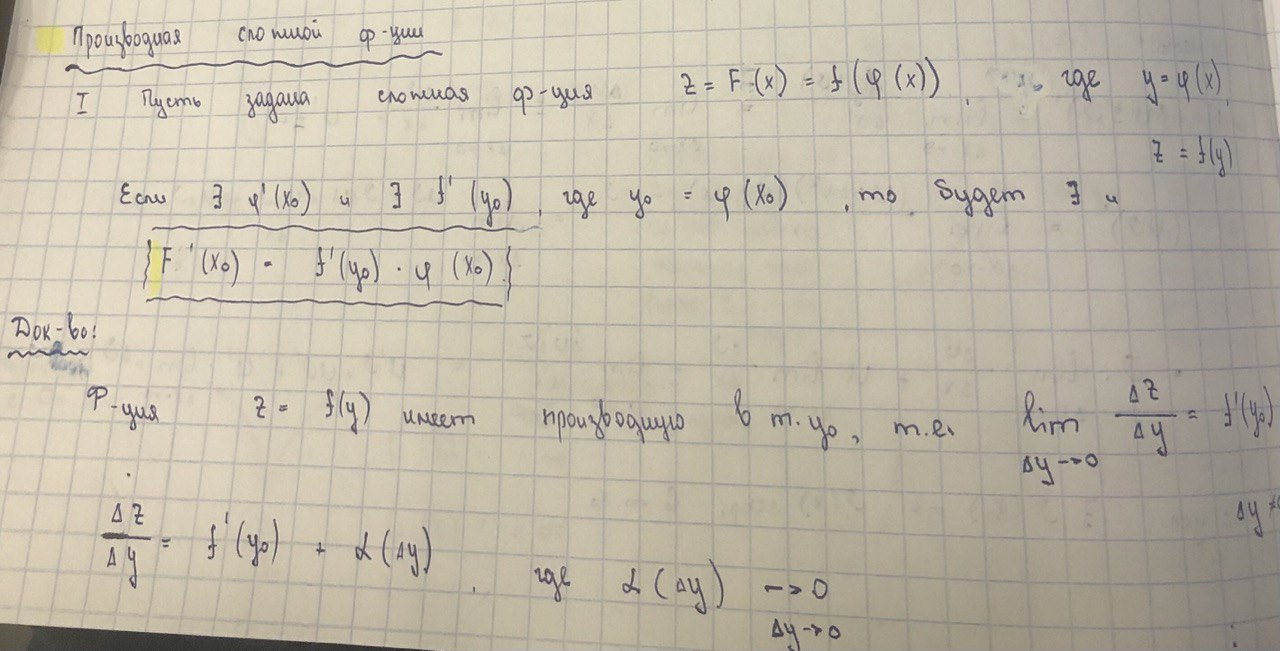 Производная сложной ф-ции
I Пусть задана сложная ф-ция Z = F(x) = f(φ(x)), где y = φ(x),
Z = f(y)
Если ∃ φ'(x₀) и ∃ f'(y₀), где y₀ = φ(x₀), то будет ∃ и
F'(x₀) = f'(y₀) · φ (x₀)
Док-во:
Ф-ция Z = f(y) имеет производную в т. y₀, т.е. lim ΔZ/Δy = f'(y₀)
Δy→0
Δy ≠
ΔZ/Δy = f'(y₀) + α(Δy), где α(Δy) → 0
Δy→0